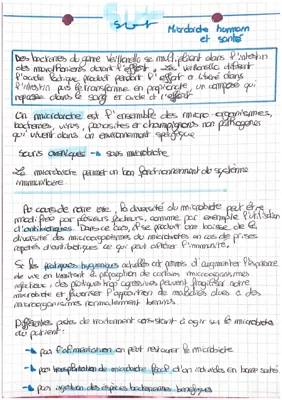 Microbiote humain
et santé
Des bactéries du genre Veillonella se multiplient dans l'intestin
des marathoniens durant l'effort. Les Veillonella utilisent
l'acide lactique produit pendant l'effort et libéré dans
l'intestin puis le transforme en propionate, un composé qui
repasse dans le sang et aide à l'effort
Un microbiote est l'ensemble des micro-organismes,
bactéries, virus, parasites et champignons non pathogènes
qui vivent dans un environnement spécifique
Souris axéniques → sans microbiote
Le microbiote permet un bon fonctionnement du système
immunitaire
Au cours de notre vie, la diversité du microbiote peut être
modifiée par plusieurs facteurs, comme par exemple l'utilisation
d'antibiotiques. Dans ce cas, il se produit une baisse de la
diversité des microorganismes du microbiote en cas de prises
répétées d'antibiotiques ce qui peut affecter l'immunité.
Si les pratiques hygiéniques actuelles ont permis d'augmenter l'espérance
de vie en limitant la propagation de certains microorganismes
infectieux, des pratiques trop agressives peuvent fragiliser notre
microbiote et favoriser l'apparition de maladies dues à des
microorganismes normalement bénins.
Différentes pistes de traitement consistent à agir sur le microbiote
du patient:
→ par l'alimentation on peut restaurer le microbiote
→ par transplantation de microbiote fécal d'un individu en bonne santé
→ par ingestion des espèces bactériennes bénéfiques